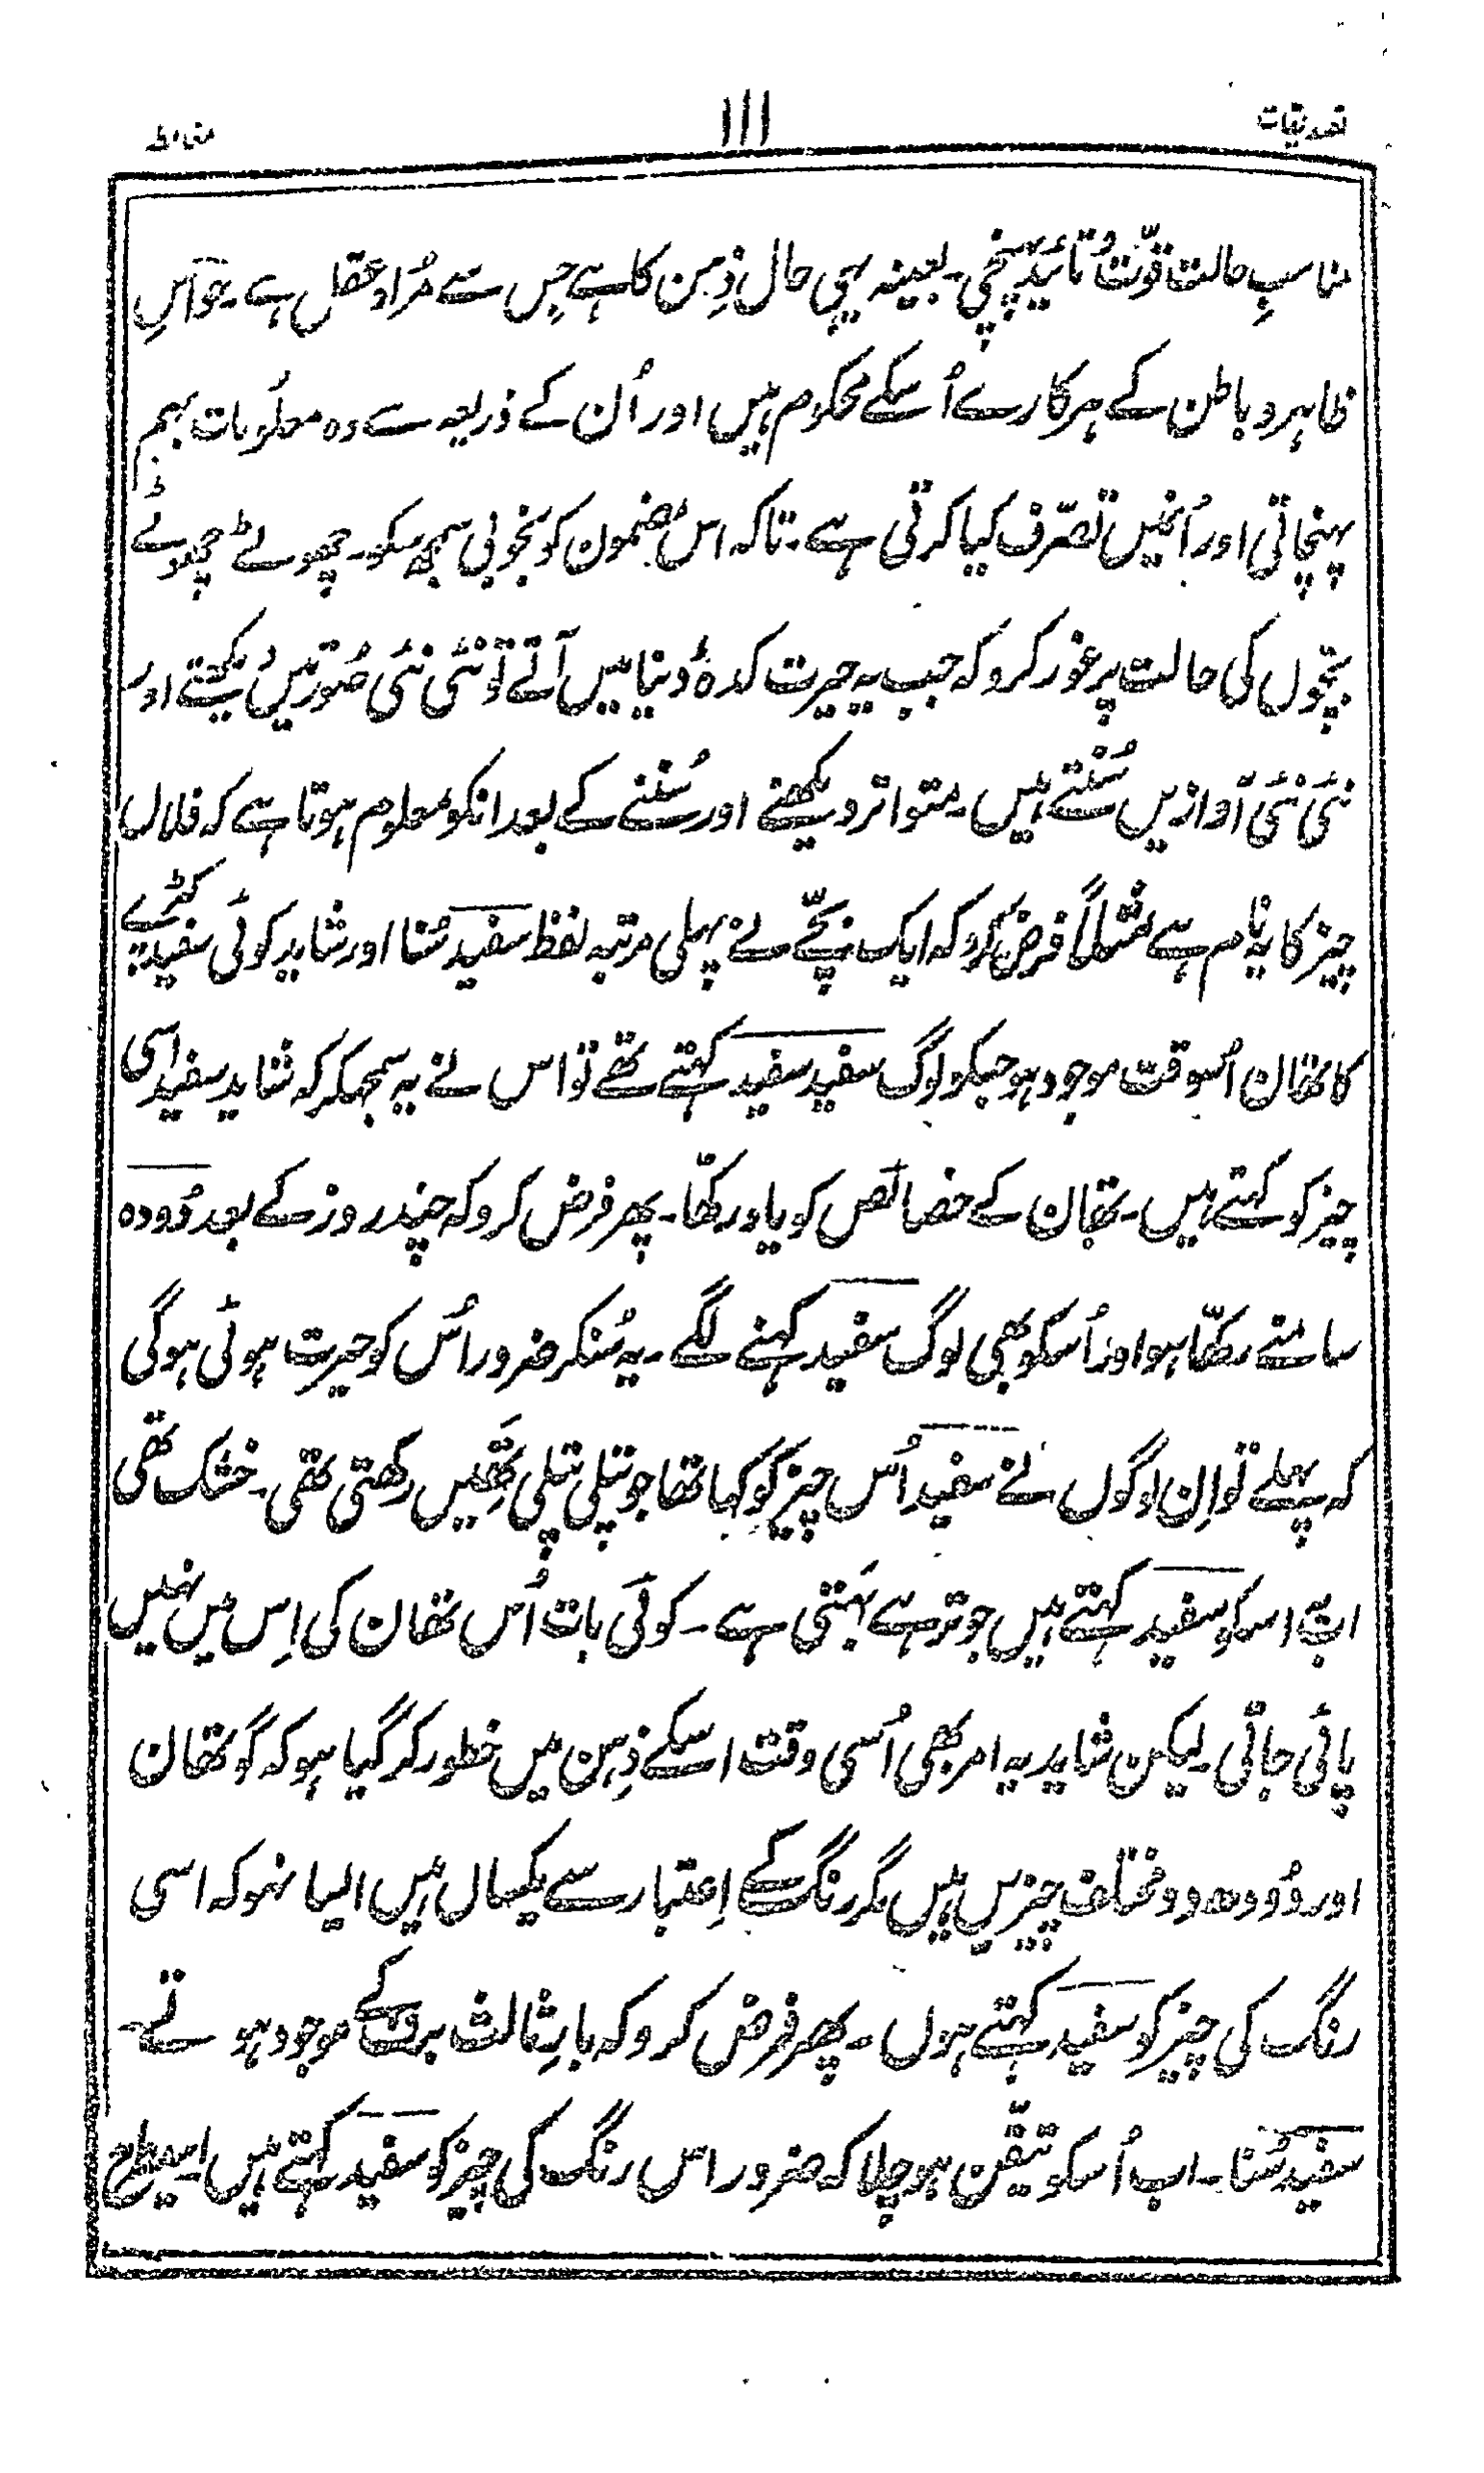 تصدیقات ۱۱۱ مغالطہ
مناسبِ حالت قوّتُ تائید پہنچی۔ بعینہ یہی حال ذہن کا ہے جِس سے مُراد عقل ہے۔ حواسِ
ظاہر و باطن کے ہرکارے اُسکے محکوم ہیں اور اُن کے ذریعہ سے وہ معلُومات بہم
پہنچاتی اور اُنمیں تصرّف کیا کرتی ہے۔ تاکہ اس مضمون کو بخوبی سمجھ سکو۔ چھوٹے چھوٹے
بچّوں کی حالت پر غور کرو کہ جب یہ حیرت کدۂ دُنیا میں آتے تو نئی نئی صُورتیں دیکھتے اور
نئی نئی آوازیں سُنتے ہیں۔ متواتر دیکھنے اور سُننے کے بعد انکو معلوم ہوتا ہے کہ فلاں
چیز کا یہ نام ہے مثلاً فرض کرو کہ ایک بچّے نے پہلی مرتبہ لفظ سفید سُنا اور شاید کوئی سفید کپڑے
کا تھان اُسوقت موجود ہو جسکو لوگ سفید سفید کہتے تھے تو اس نے یہ سمجھکر کہ شاید سفید اسی
چیز کو کہتے ہیں۔ تھان کے خصائص کو یاد رکھّا۔ پھر فرض کرو کہ چند روز کے بعد دُودہ
سامنے رکھّا ہو اور اُسکو بھی لوگ سفید کہنے لگے۔ یہ سُنکر ضرور اُس کو حیرت ہوئی ہوگی
کہ پہلے تو اِن لوگوں نے سفید اُس چیز کو کہا تھا جو پتلی پتلی تھیں رکھتی تھی۔ خشک تھی
اب یہ اسکو سفید کہتے ہیں جو تر ہے بَہتی ہے۔ کوئی بات اُس تھان کی اِس میں نہیں
پائی جاتی۔ لیکن شاید یہ امر بھی اُسی وقت اسکے ذِہن میں خطور کر گیا ہو کہ گو تھان
اور دُودھ دو مختلف چیزیں ہیں مگر رنگ کے اِعتبار سے یکساں ہیں ایسا نہو کہ اسی
رنگ کی چیز کو سفید کہتے ہوں۔ پھر فرض کرو کہ بارِ ثالث برف کے موجود ہوتے
سفید سُنا۔ اب اُسکو تیقّن ہو چلا کہ ضرور اس رنگ کی چیز کو سفید کہتے ہیں اسیطرح